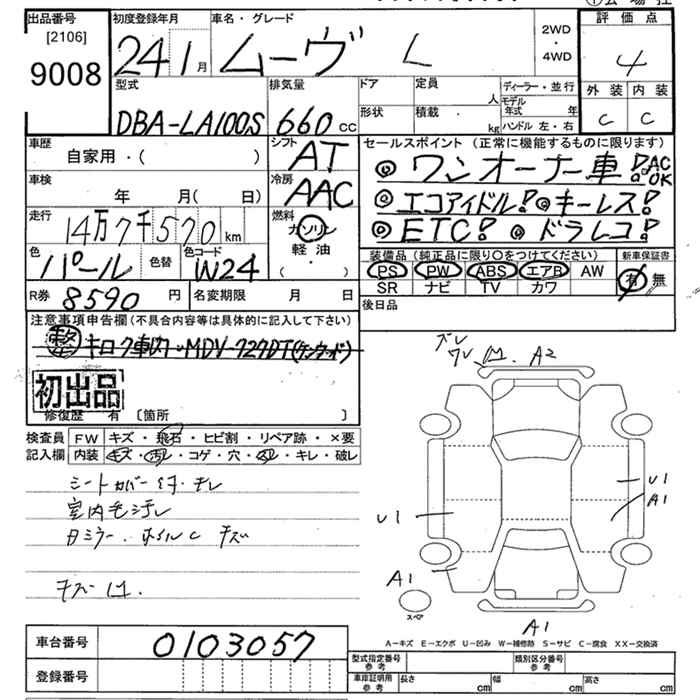 出品番号 初度登録年月 車名・グレード 評価点
[2106] 24 1月 ムーヴ L 2WD・4WD 4
9008 外装 内装
型式 排気量 ドア 定員 人 ディーラー・並行 C C
モデル年式 年
DBA-LA100S 660cc 形状 積載 kg ハンドル 左・右
車歴 シフト セールスポイント(正常に機能するものに限ります)
自家用・( ) AT ◎ワンオーナー車! AAC OK
車検 冷房
年 月( 日) AAC ◎エコアイドル!◎キーレス!
走行 燃料 ◎ETC!◎ドラレコ!
14万7千570km ガソリン
色 色替 色コード 軽油 装備品(純正品に限り○をつけてください) 新車保証書
パール W24 ( ・ ) PS PW ABS エアB AW 有・無
SR ナビ TV カワ
R券 8590円 名変期限 月 日 後日品
注意事項申告欄(不具合内容等は具体的に記入して下さい)
A2
初出品
修復歴 有 [箇所 ]
検査員 FW キズ・飛石・ヒビ割・リペア跡・×要
記入欄 内装 キズ・汚レ・コゲ・穴・スレ・キレ・破レ
シートカバー
U1
A1
室内
U1
キズ
A1
スペア
A1
A-キズ E-エクボ U-凹み W-補修跡 S-サビ C-腐食 XX-交換済
車台番号 0103057
型式指定番号参考 類別区分番号参考
登録番号
車庫証明用参考 長さ cm 幅 cm 高さ cm